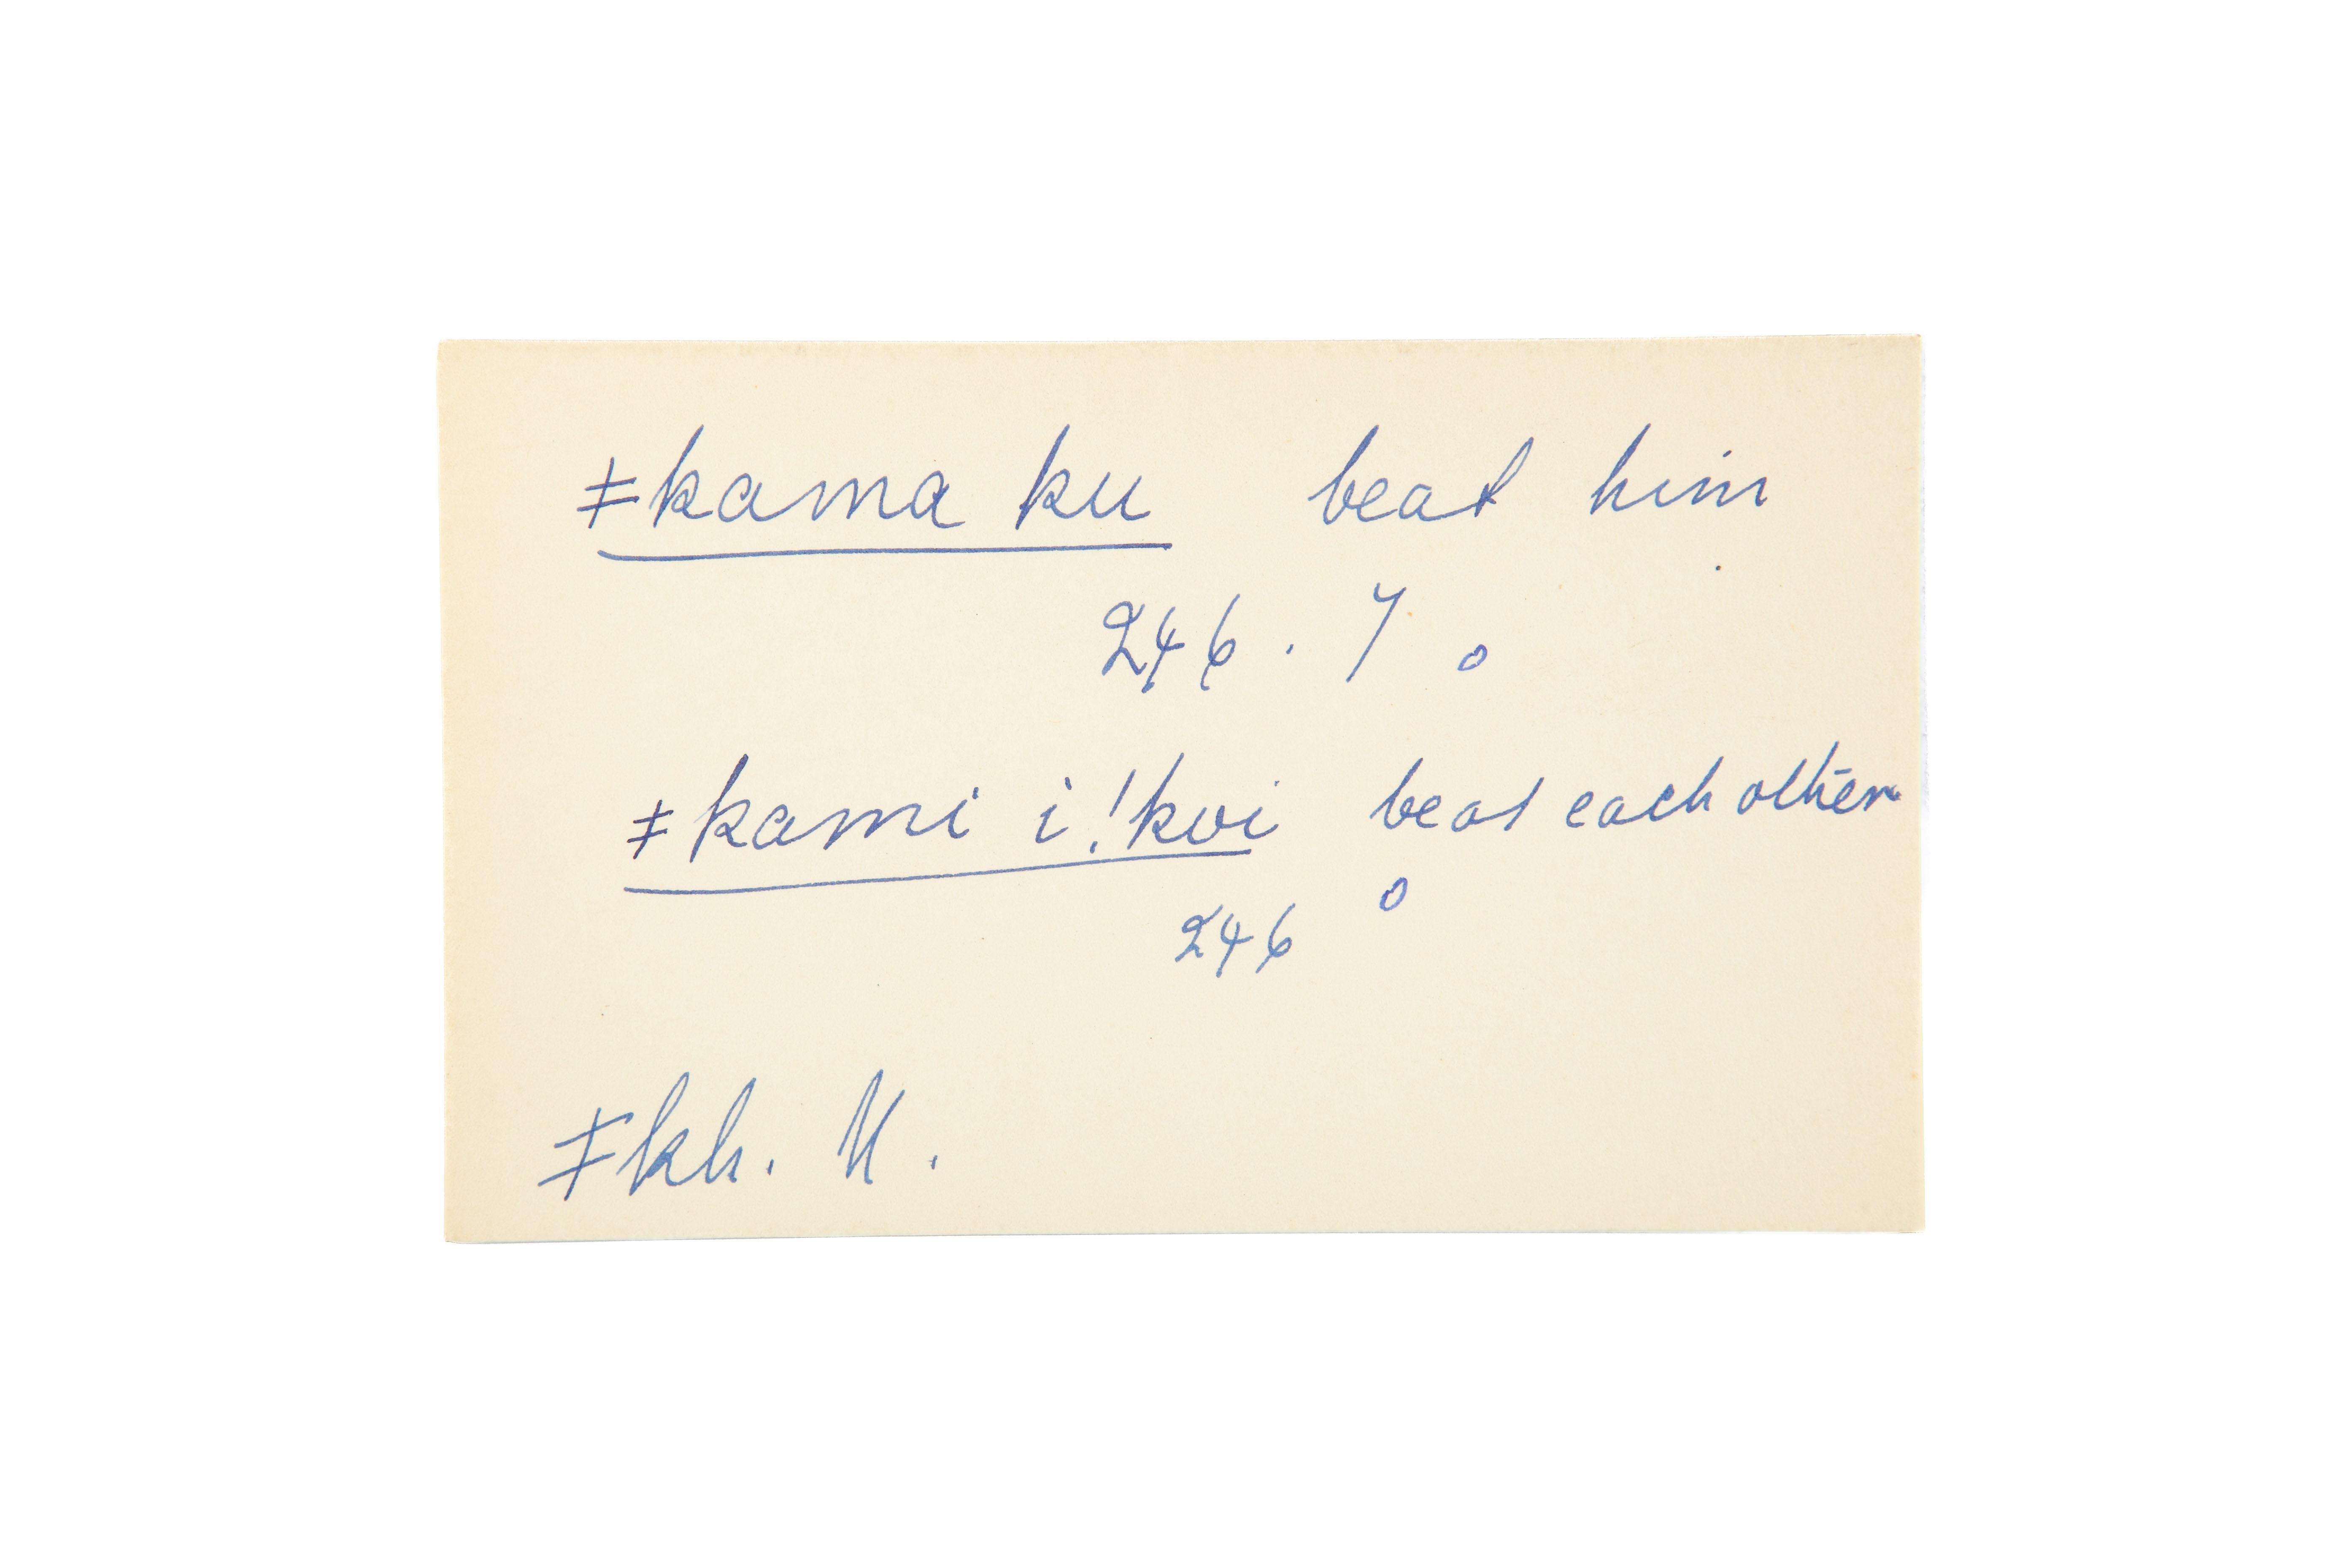 ǂkama ku beat him
246. 7 o
ǂkami i !koi beat each other
246 o
ǂkh. M.